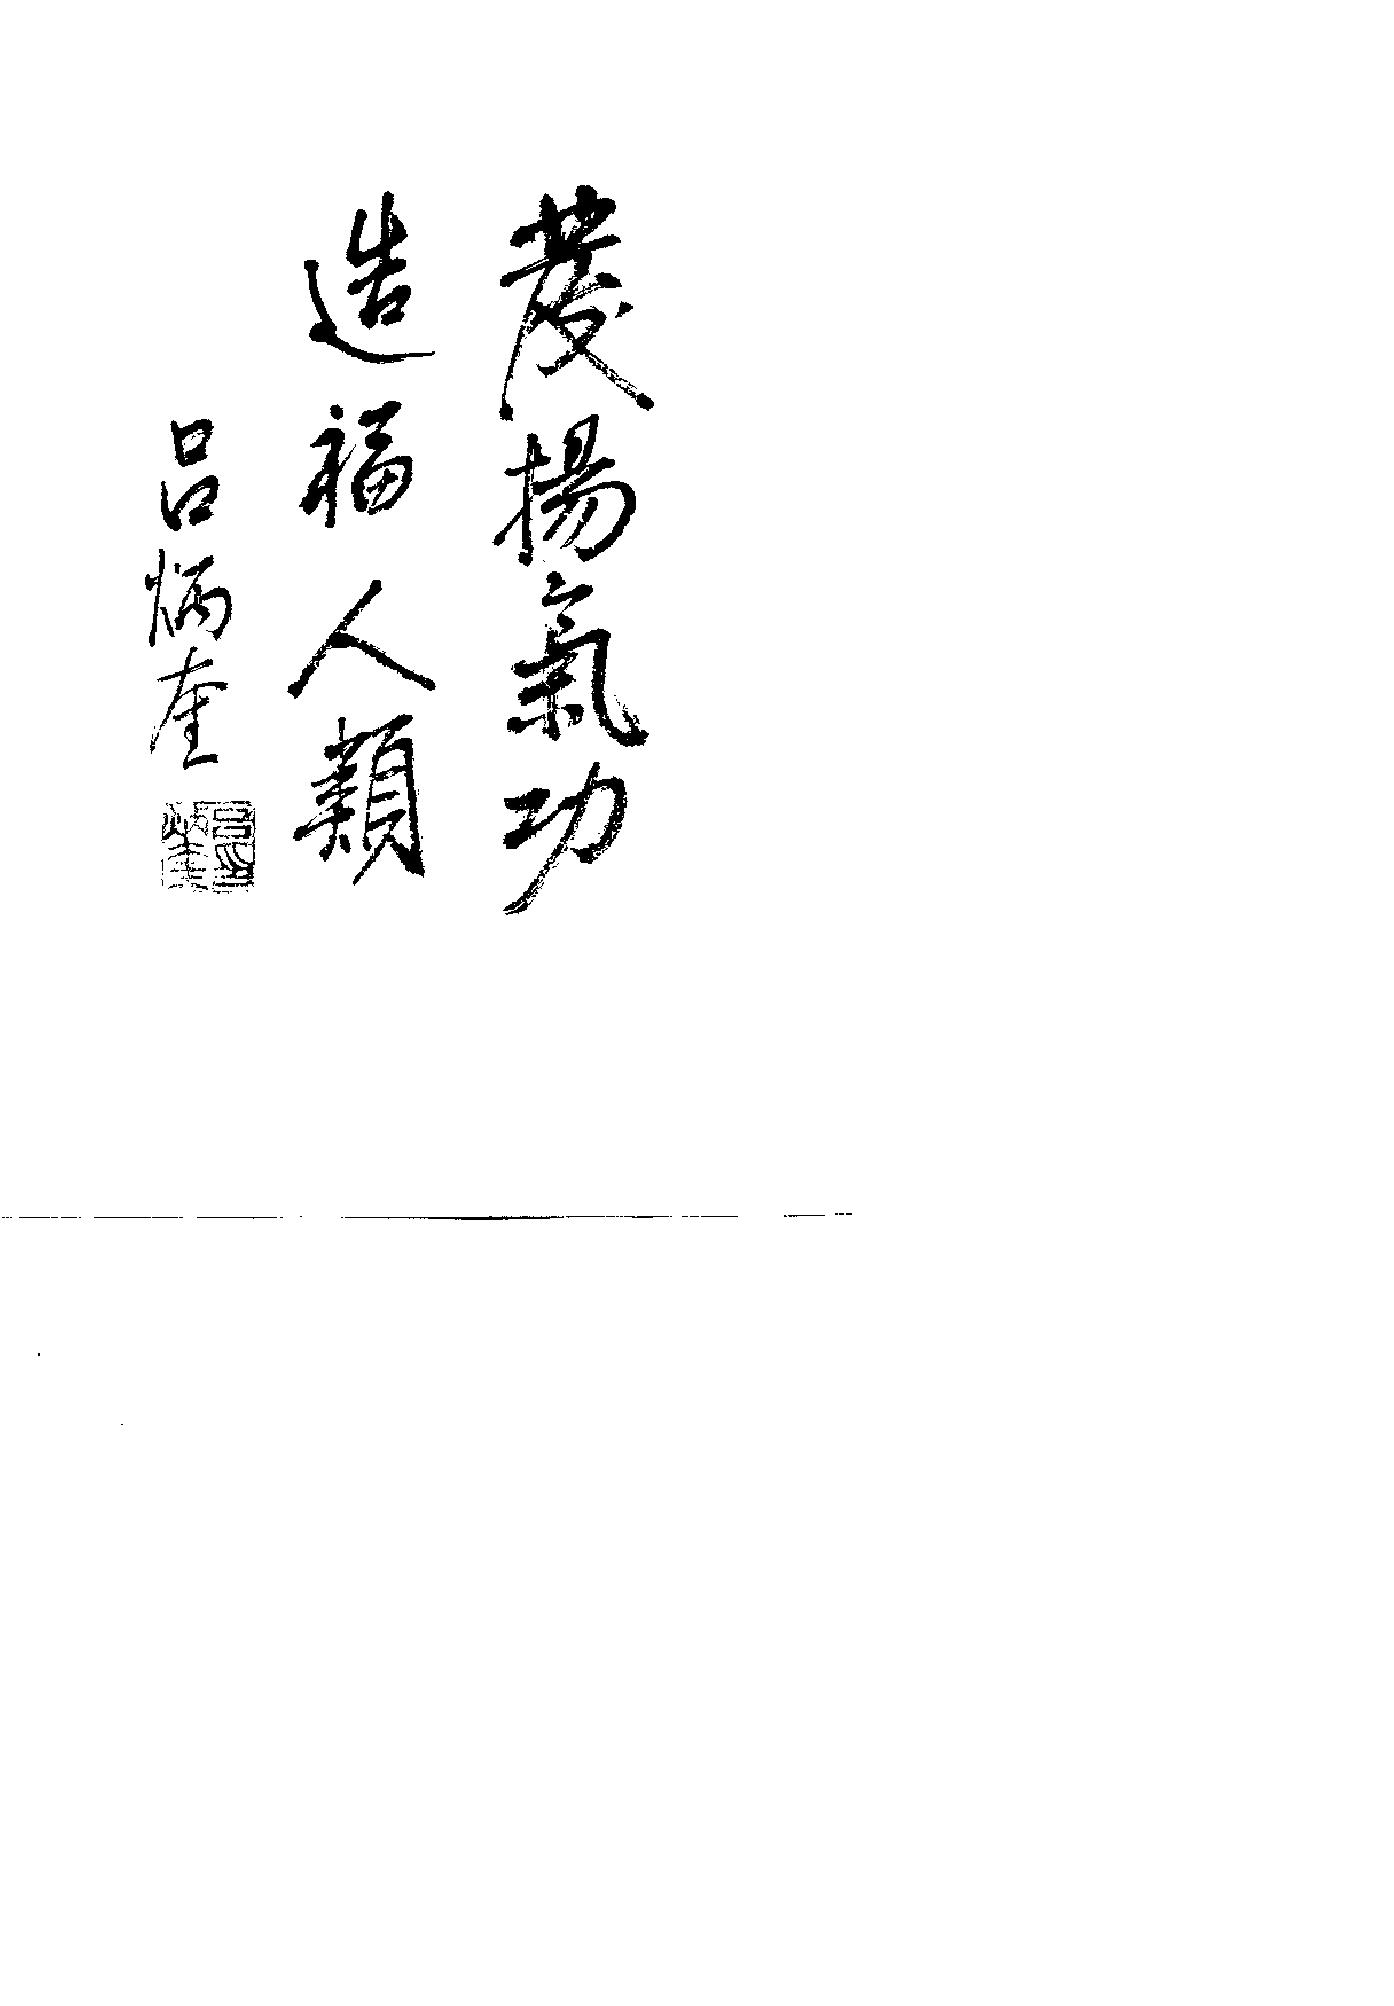 发揚氣功
造福人類
吕炳奎